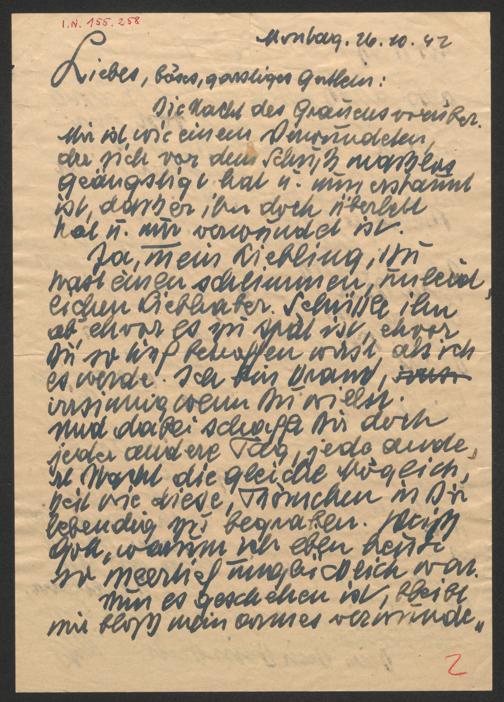 I.N. 155.258
Montag. 26.10.42
Liebes, böses, garstiges
Die Nacht des Grauens vorüber.
Mir ist wie einem Verwundeten,
der sich vor dem Schuß maßlos
geängstigt hat u. nun erstaunt
ist, daß er ihn doch überlebt
hat u. nur verwundet ist.
Ja, mein Liebling, Du
hast einen schlimmen, unleid„
lichen Liebhaber. Schüttle ihn
ab ehvor es zu spät ist, ehvor
Du so tief betroffen wirst als ich
es werde. Ich bin krank,
irrsinnig wenn Du willst.
Und dabei schafft Dir doch
jeder andere Tag, jede ande„
re Nacht die gleiche Möglich„
keit wie diese, Menschen in Dir
lebendig zu begraben. Weiß
Gott, warum ich eben heute
so unglücklich war.
Nun es geschehen ist, bleibt
mir bloß mein armes verwunde„
2